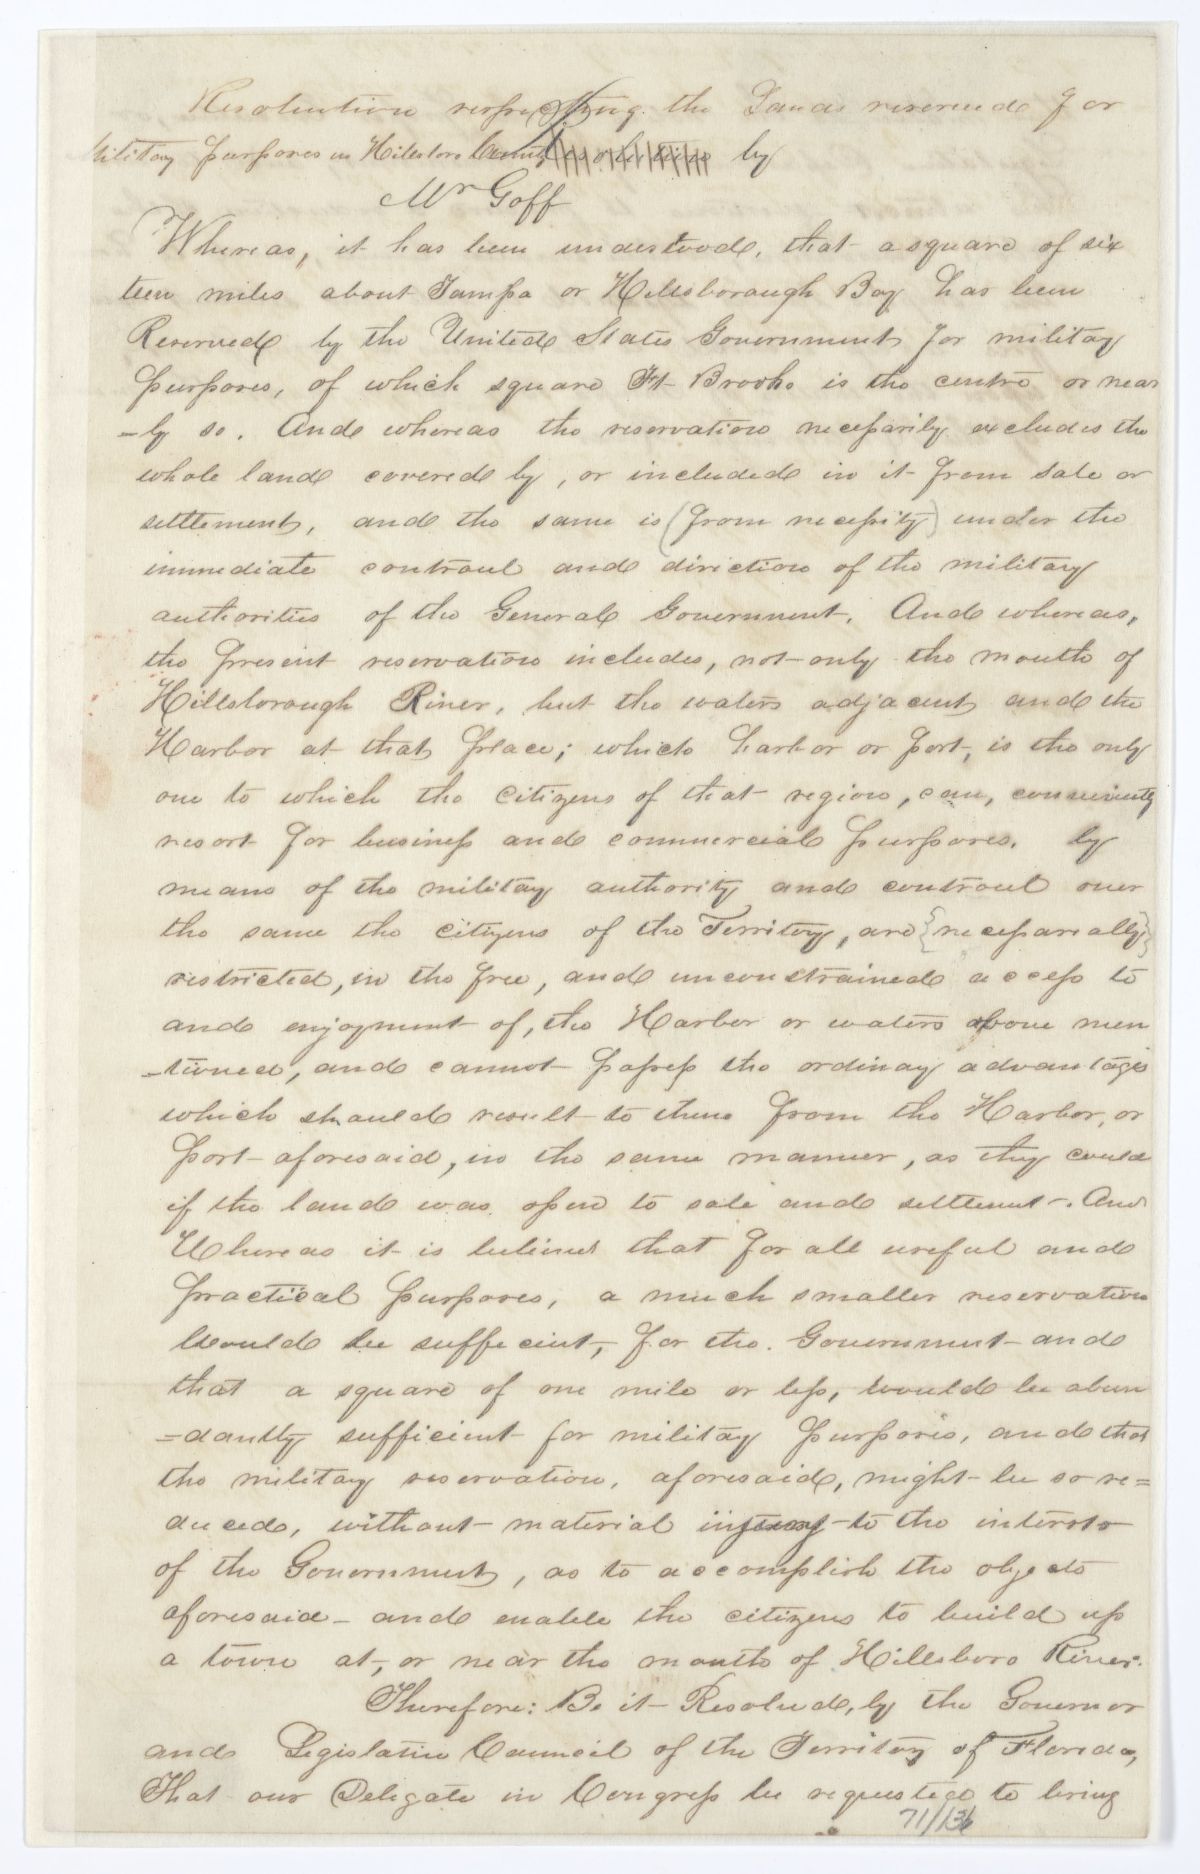 Resolution respecting the Lands reserved for
Military purposes in Hilesboro County by
Mr Goff
Whereas, it has been understood, that a square of six
teen miles about Tampa or Hillsborough Bay has been
Reserved by the United States Government for military
purposes, of which square Ft Brooke is the centre or near
-ly so. And whereas the reservation necessarily excludes the
whole land covered by, or included in it from sale or
settlement, and the same is (from necessity) under the
immediate controul and direction of the military
authorities of the General Government. And whereas,
the present reservation includes, not only the mouth of
Hillsborough River, but the waters adjacent and the
Harbor at that place; which harbor or port, is the only
one to which the citizens of that region, can, conveniently
resort for business and commercial purposes. by
means of the military authority and controul over
the same the citizens of the Territory, are {necessarially}
restricted, in the free, and unconstrained access to
and enjoyment of, the Harbor or waters above men
-tioned, and cannot possess the ordinary advantages
which should result to them from the Harbor, or
port aforesaid, in the same manner, as they could
if the land was open to sale and settlement. And
Whereas it is believed that for all useful and
practical purposes, a much smaller reservation
would be sufficient, for the. Government and
that a square of one mile or less, would be abun
=dantly sufficient for military purposes, and that
the military reservation, aforesaid, might be so re=
duced, without material injury to the interests
of the Government, as to accomplish the objects
aforesaid - and enable the citizens to build up
a town at, or near the mouth of Hillsboro River.
Therefore: Be it Resolved, by the Governor
and Legislative Council of the Territory of Florida,
That our Delegate in Congress be requested to bring
71/136